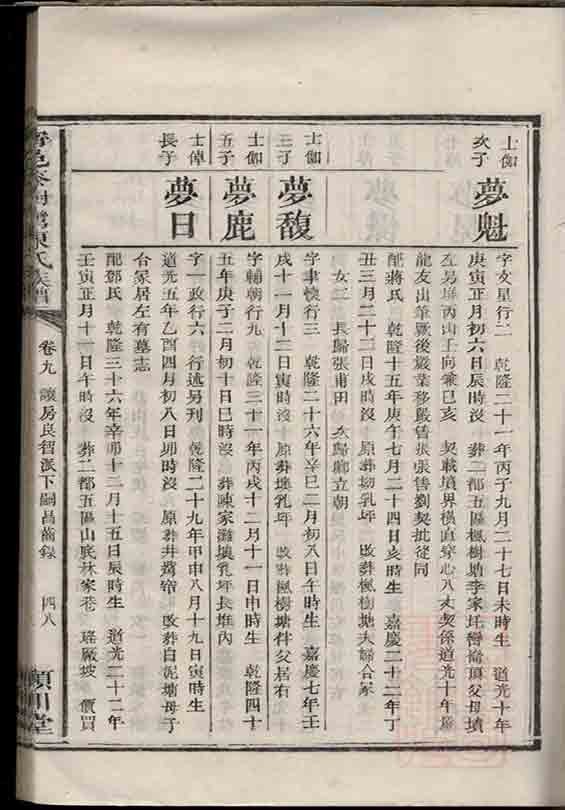 士伽
次子
夢魁
字文星行二 乾隆二十一年丙子九月二十七日未時生 道光十年
庚寅正月初六日辰時沒 葬二都五區楓樹塘李家坵灣崙頂父母墳
左另堆丙山壬向兼巳亥 契載墳界橫直穿心八丈契係道光十年
龍友出筆厥後嚴業移嚴售張張售劉契批從同
配蔣氏 乾隆十五年庚午七月二十四日亥時生 嘉慶二十二年丁
丑三月二十三日戌時沒 原葬坳乳坪 改葬楓樹塘夫婦合冢
女二 長歸張甫田 次歸鄺立朝
士伽
三子
夢馥
字聿懷行三 乾隆二十六年辛巳二月初八日午時生 嘉慶七年壬
戌十一月十二日寅時沒 原葬坳乳坪 改葬楓樹塘伴父居右
士伽
五子
夢鹿
字輔朝行九 乾隆三十一年丙戌十二月十一日申時生 乾隆四十
五年庚子二月初十日巳時沒 葬陳家灘坳乳坪長堆內
士倬
長子
夢日
字一政行六 行述另刊 乾隆二十九年甲申八月十九日寅時生
道光五年乙酉四月初八日卯時沒 原葬井灣 改葬白泥塘母子
合冢居左有墓志
配鄧氏 乾隆三十六年辛卯十二月十五日辰時生 道光二十二年
壬寅正月十一日午時沒 葬二都五區山底林家巷 瑤厰坡 價買
氏族譜
卷九 讓房良智派下嗣昌
錄
四八
潁川堂